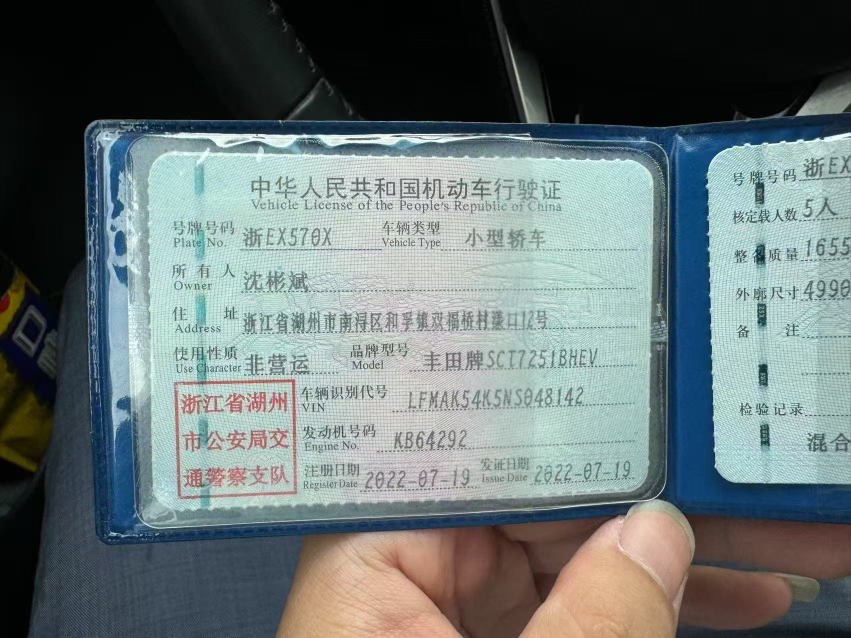 中华人民共和国机动车行驶证
Vehicle License of the People's Republic of China
号牌号码 浙EX570X 车辆类型 小型轿车
Plate No. Vehicle Type
所有人 沈彬斌
Owner
住址 浙江省湖州市南浔区和孚镇双福桥村漾口12号
Address
使用性质 非营运 品牌型号 丰田牌SCT7251BHEV
Use Character Model
浙江省湖州
市公安局交
通警察支队
车辆识别代号 LFMAK54K5NS048142
VIN
发动机号码 KB64292
Engine No.
注册日期 2022-07-19 发证日期 2022-07-19
Register Date Issue Date
号牌号码 浙EX
核定载人数 5人
整备质量 1655
外廓尺寸 4990
备注
检验记录
混合